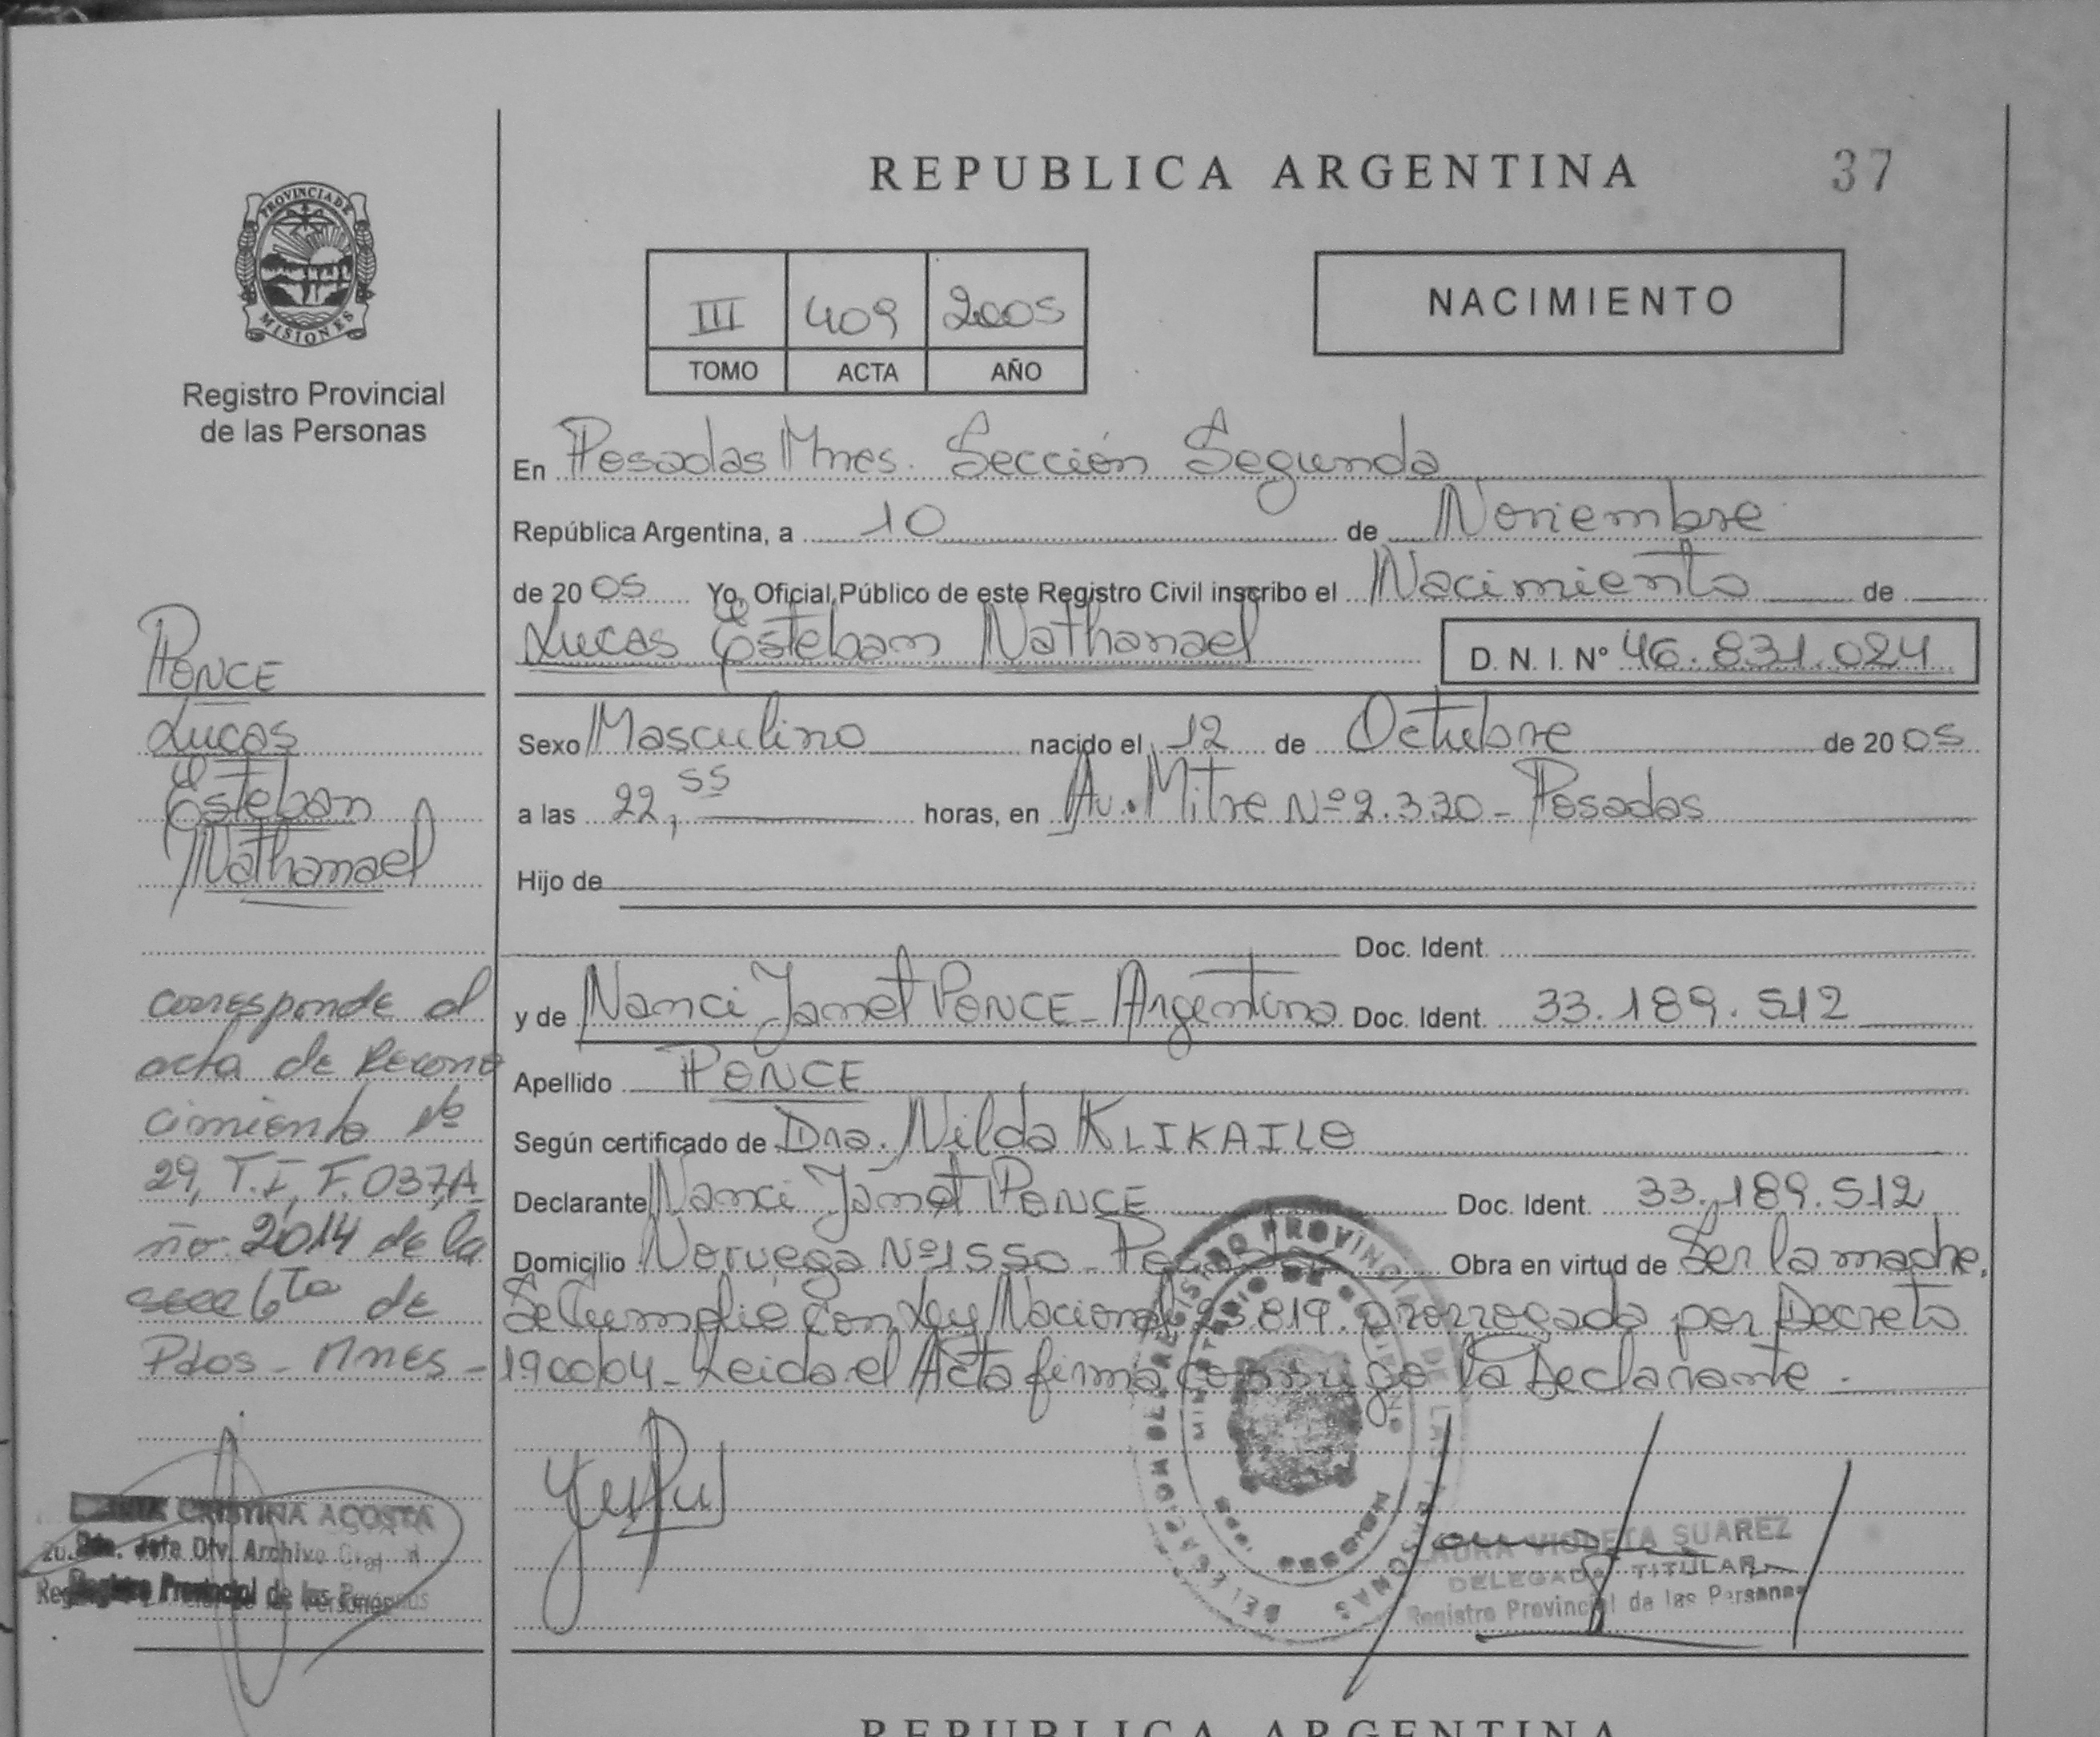 REPUBLICA ARGENTINA
37
PROVINCIA DE
MISIONES
Registro Provincial
de las Personas
III 409 2005
TOMO ACTA AÑO
NACIMIENTO
En Posadas Mnes. Sección Segunda
República Argentina, a 10 de Noviembre
de 2005 Yo, Oficial Público de este Registro Civil inscribo el Nacimiento de
Lucas Esteban Nathanael D. N. I. Nº 46.831.024
Sexo Masculino nacido el 12 de Octubre de 2005
a las 22,55 horas, en Av. Mitre Nº 2.330 - Posadas
Hijo de
Doc. Ident.
y de Nanci Janet PONCE - Argentina Doc. Ident. 33.189.512
Apellido PONCE
Según certificado de Dra. Nilda KLIKAILO
Declarante Nanci Janet PONCE Doc. Ident. 33.189.512
Domicilio Noruega Nº 1550 - Posadas Obra en virtud de Ser la madre.
Se Cumplió con Ley Nacional 23.819. prorrogada por Decreto
190004 - Leida el Acta firma conmigo la Declarante.-
PONCE
Lucas
Esteban
Nathanael
corresponde al
acta de Recono
cimiento Nº
29, T.I, F.037, A
ño 2014 de la
secc 6ta de
Pdos - Mnes -
CRISTINA ACOSTA
Jefe Div. Archivo Gral
Registro Provincial de las Personas
REGISTRO PROVINCIAL DE LAS PERSONAS
MINISTERIO DE GOBIERNO
MISIONES
LAURA VIOLETA SUAREZ
DELEGADA TITULAR
Registro Provincial de las Personas
REPUBLICA ARGENTINA